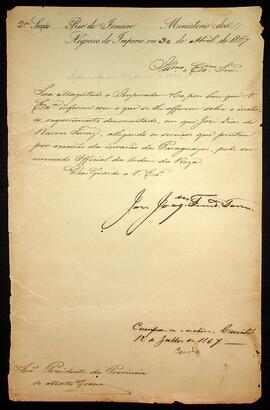 2ª Secção Rio de Janeiro Ministerio dos
Negocios do Imperio em 30 de Abril de 1867
Illmo. e Exmo. Snr.
Sua Magestade o Imperador Ha por bem que V.
Exª informe com o que se lhe offerecer sobre o inclu-
so requerimento documentado, em que José Dias de
Barros Ferraz, allegando os serviços que prestou
por occasião da invasão dos Paraguayos, pede ser
nomeado Official da Ordem da Roza.
Deos Guarde a V. Exª
Cumpra-se e archive. Cuiabá
12 de Julho de 1867.
Snr. Presidente da Provincia
de Matto Grosso